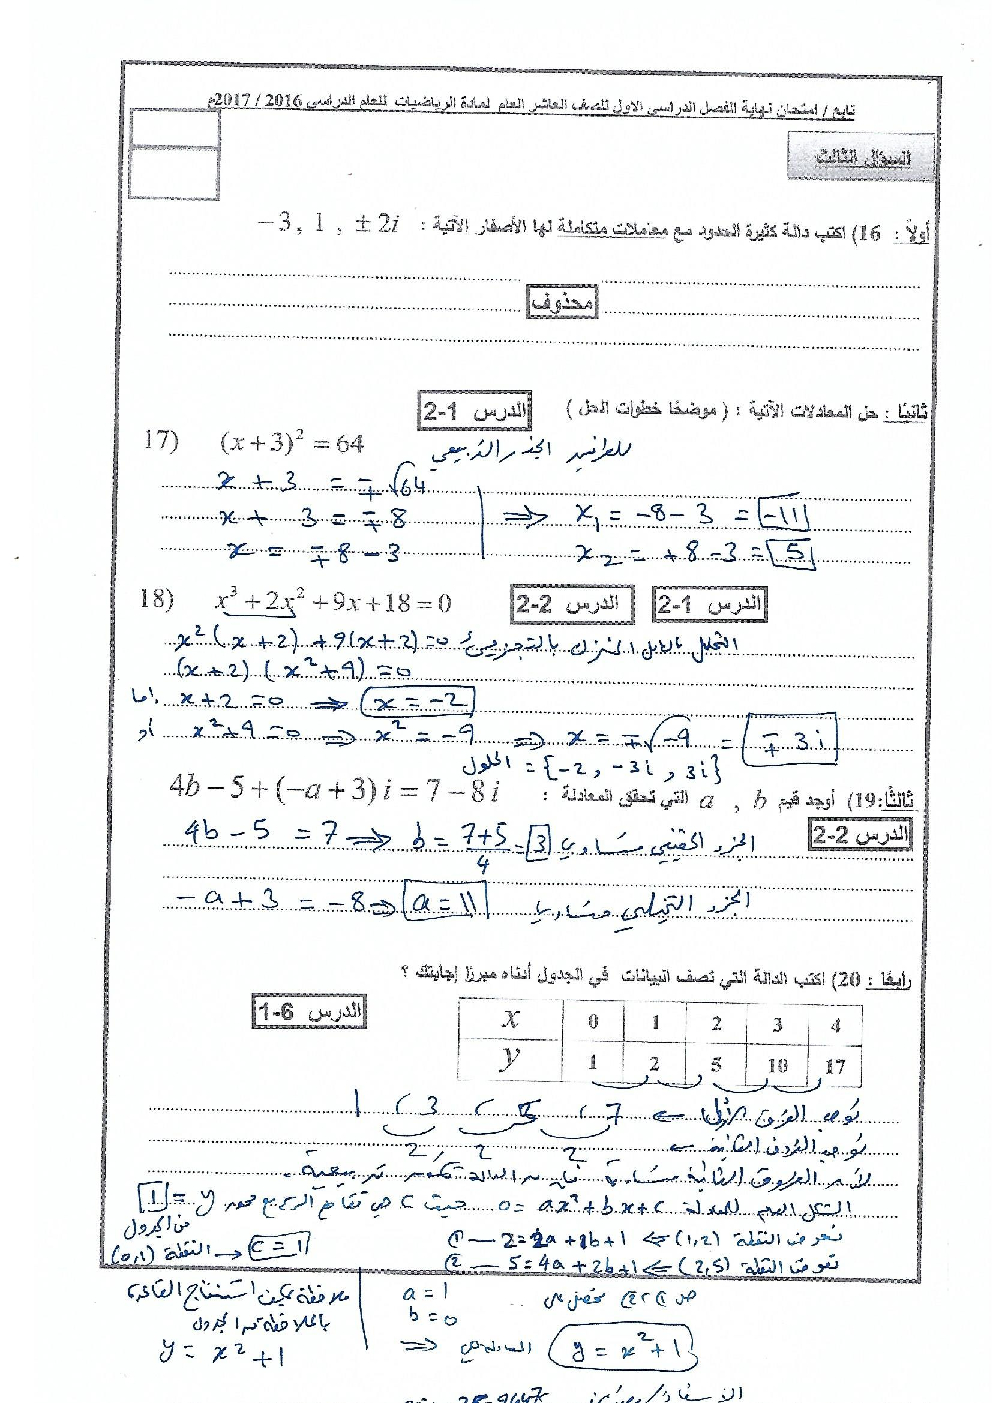 تابع / امتحان نهاية الفصل الدراسي الاول للصف العاشر العام لمادة الرياضيات للعام الدراسي 2016 / 2017م
السؤال الثالث
أولاً : 16) اكتب دالة كثيرة الحدود مع معاملات متكاملة لها الأصفار الآتية : −3 , 1 , ± 2i
محذوف
ثانيًا : حل المعادلات الآتية : ( موضحًا خطوات الحل ) الدرس 1-2
17) (x + 3)² = 64 الجذر التربيعي للطرفين
x + 3 = ∓√64
x + 3 = ∓8 ⇒ x₁ = -8 - 3 = -11
x = ∓8 - 3 x₂ = +8 - 3 = 5
18) x³ + 2x² + 9x + 18 = 0 الدرس 2-2 الدرس 1-2
x²(x+2) + 9(x+2) = 0 التحليل بالعامل المشترك بالتجزيء
(x+2)(x²+9) = 0
اما x + 2 = 0 ⇒ x = -2
أو x² + 9 = 0 ⇒ x² = -9 ⇒ x = ∓√-9 = ∓3i
الحلول = {-2, -3i, 3i}
ثالثًا :19) أوجد قيم a , b التي تحقق المعادلة : 4b − 5 + (−a + 3) i = 7 − 8i
الدرس 2-2
4b - 5 = 7 ⇒ b = 7+5/4 = 3 الجزء الحقيقي مساوي
-a + 3 = -8 ⇒ a = 11 الجزء التخيلي مساوي
رابعًا : 20) اكتب الدالة التي تصف البيانات في الجدول أدناه مبررًا إجابتك ؟
الدرس 6-1
x 0 1 2 3 4
y 1 2 5 10 17
نوجد الفرق الأول ← 1 , 3 , 5 , 7
نوجد الفروق الثانية ← 2, 2 2
لأن الفروق الثانية متساوية فإن الدالة تكون تربيعية.
الشكل العام للمعادلة 0 = ax² + bx + c حيث c هي تقاطع الرسم مع محور y = 1
من الجدول
النقطة (0,1) → c = 1
نعوض النقطة (1,2) ⇐ 2 = 1a + 1b + 1 — ①
نعوض النقطة (2,5) ⇐ 5 = 4a + 2b + 1 — ②
من ① و ② نحصل على ..
a = 1
b = 0
⇒ المعادلة هي y = x² + 1
ملاحظة يمكن استنتاج القاعدة
بالملاحظة من الجدول
y = x² + 1